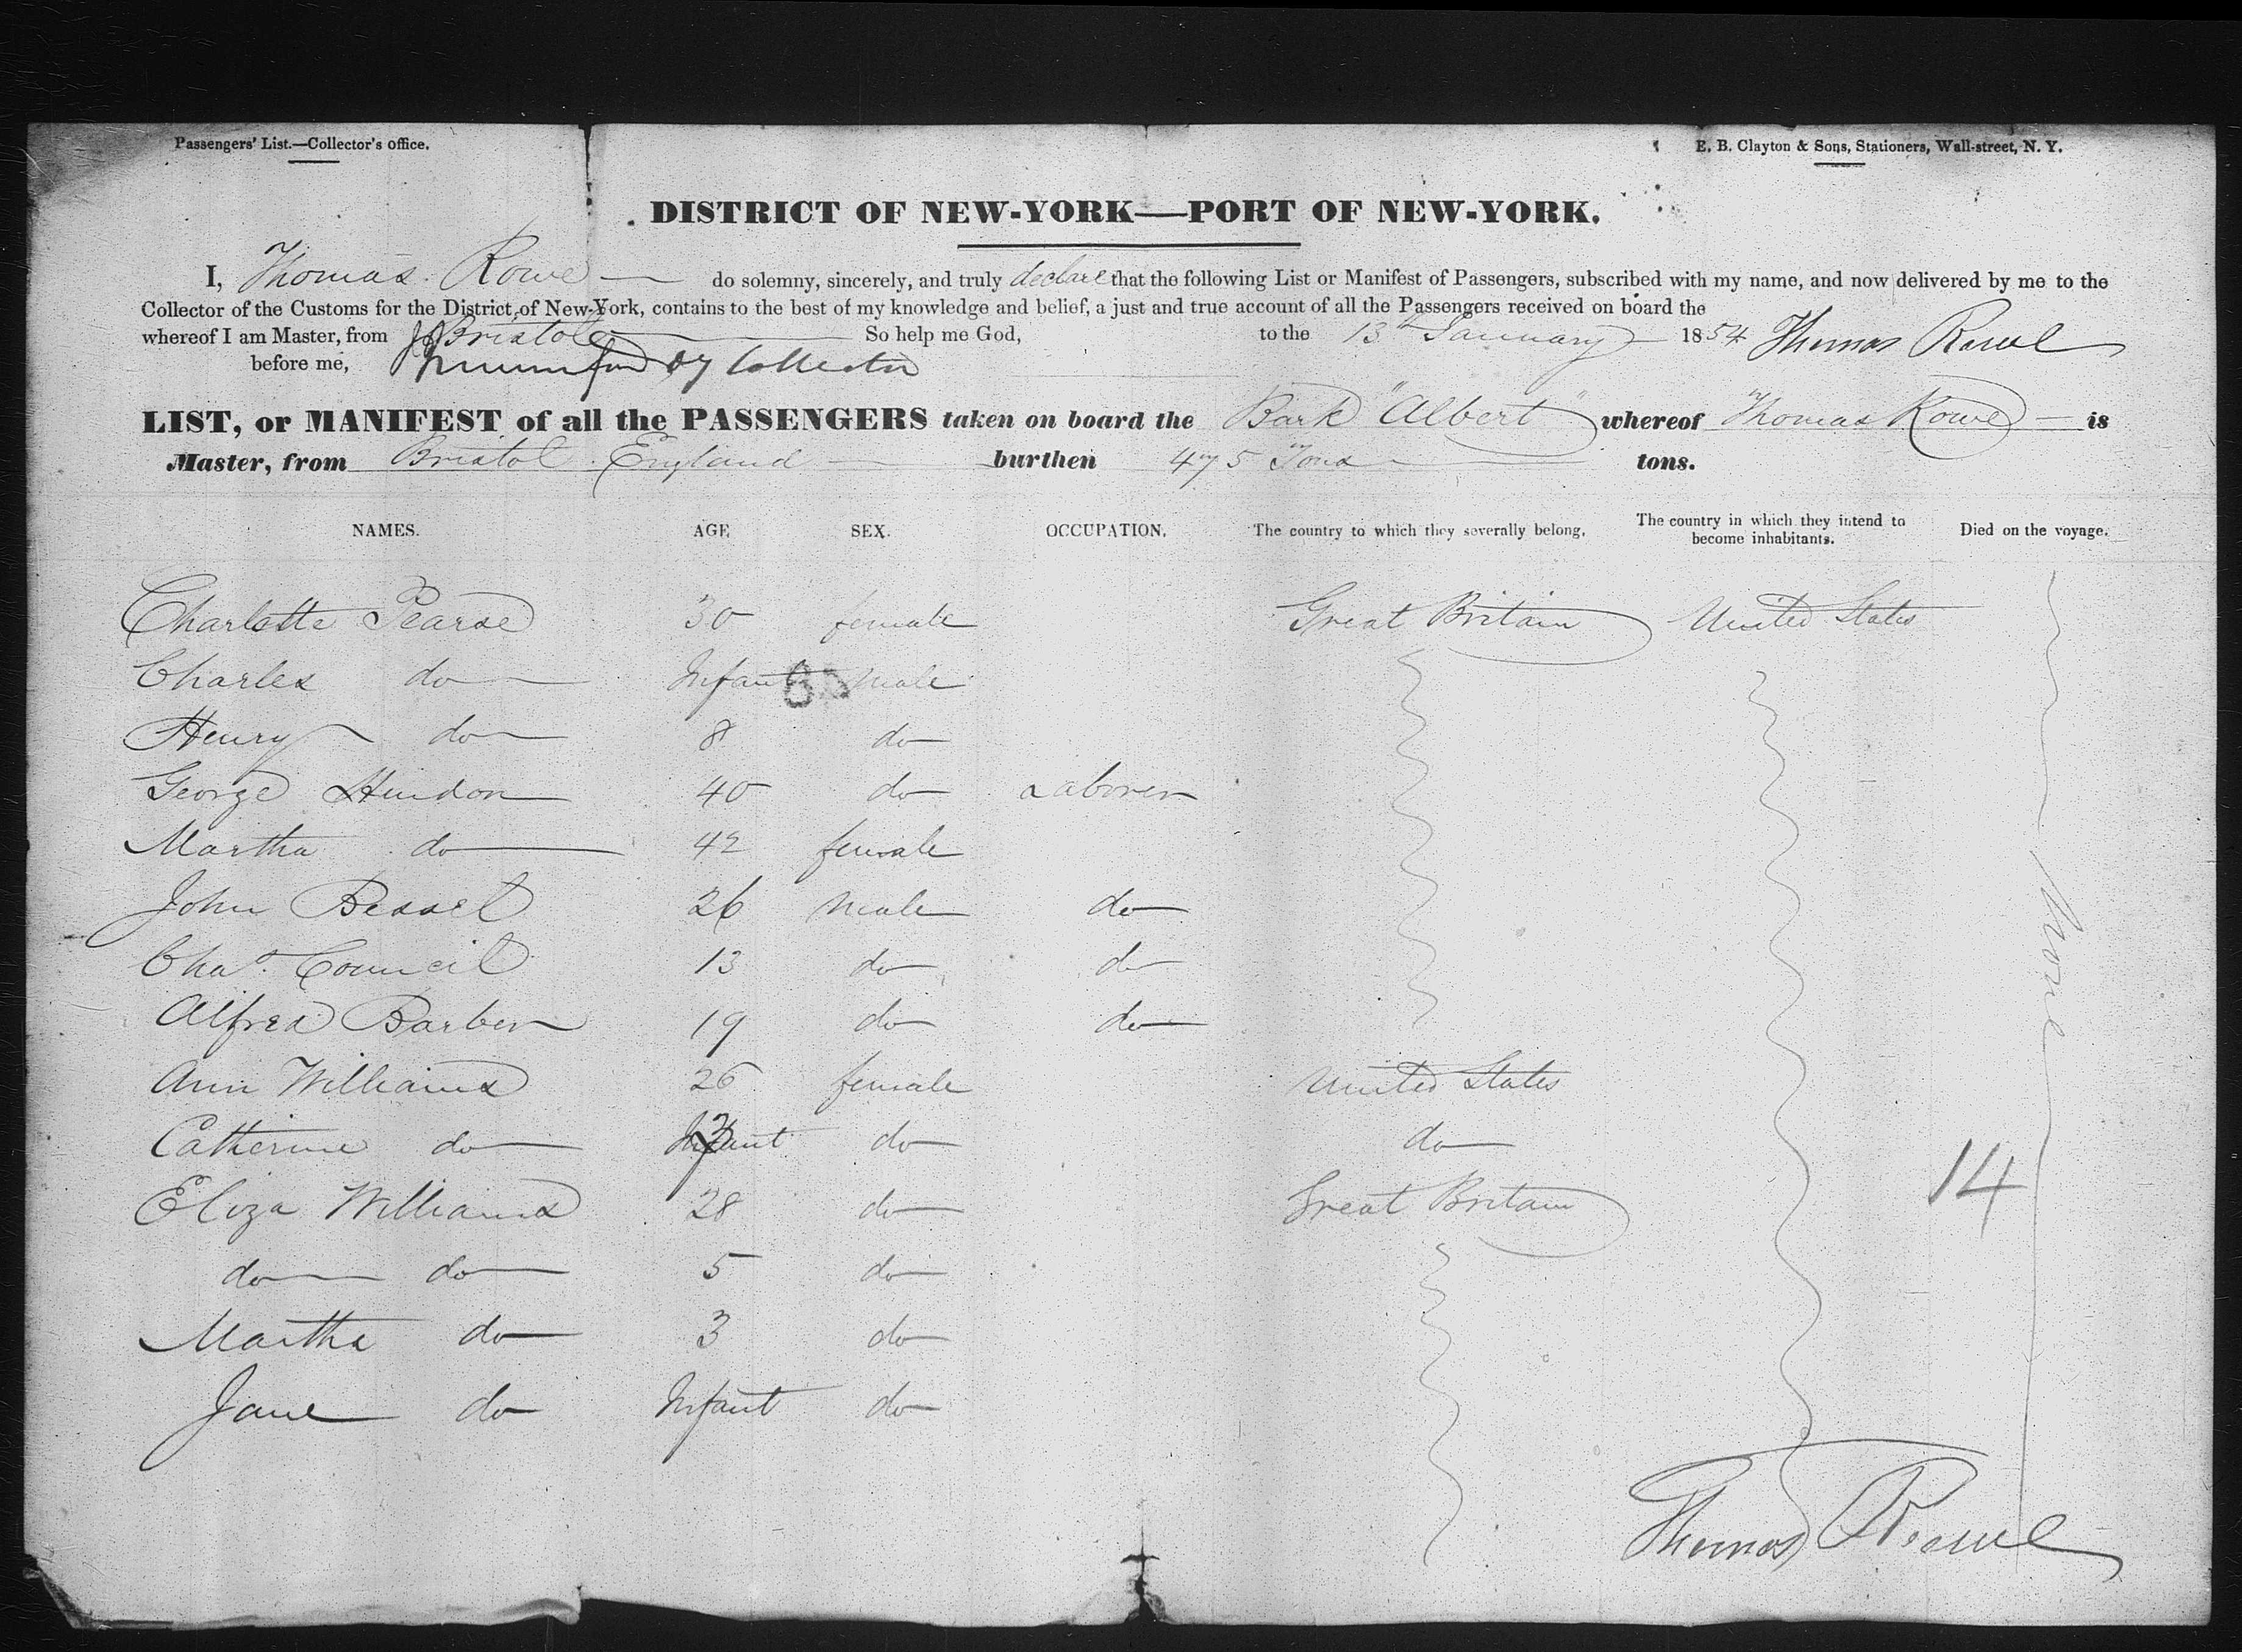 Passengers' List.—Collector's office.
E. B. Clayton & Sons, Stationers, Wall-street, N. Y.
DISTRICT OF NEW-YORK—PORT OF NEW-YORK.
I, Thomas Rowe do solemny, sincerely, and truly declare that the following List or Manifest of Passengers, subscribed with my name, and now delivered by me to the
Collector of the Customs for the District of New-York, contains to the best of my knowledge and belief, a just and true account of all the Passengers received on board the
whereof I am Master, from Bristol So help me God, to the 13th January 1854 Thomas Rowe
before me, Dy Collector
LIST, or MANIFEST of all the PASSENGERS taken on board the Bark "Albert" whereof Thomas Rowe is
Master, from Bristol England burthen 475 Tons tons.
NAMES. AGE SEX. OCCUPATION. The country to which they severally belong. The country in which they intend to become inhabitants. Died on the voyage.
Charlotte Pearse 30 female Great Britain United States
Charles do Infant male
Henry do 8 do
George Hindon 40 do Laborer
Martha do 42 female
John Bessel 26 male do
Chas. Council 13 do do
Alfred Barber 19 do do
Ann Williams 26 female United States
Catherine do Infant do do
Eliza Williams 28 do Great Britain
do do 5 do
Martha do 3 do
Jane do Infant do
None
14
Thomas Rowe